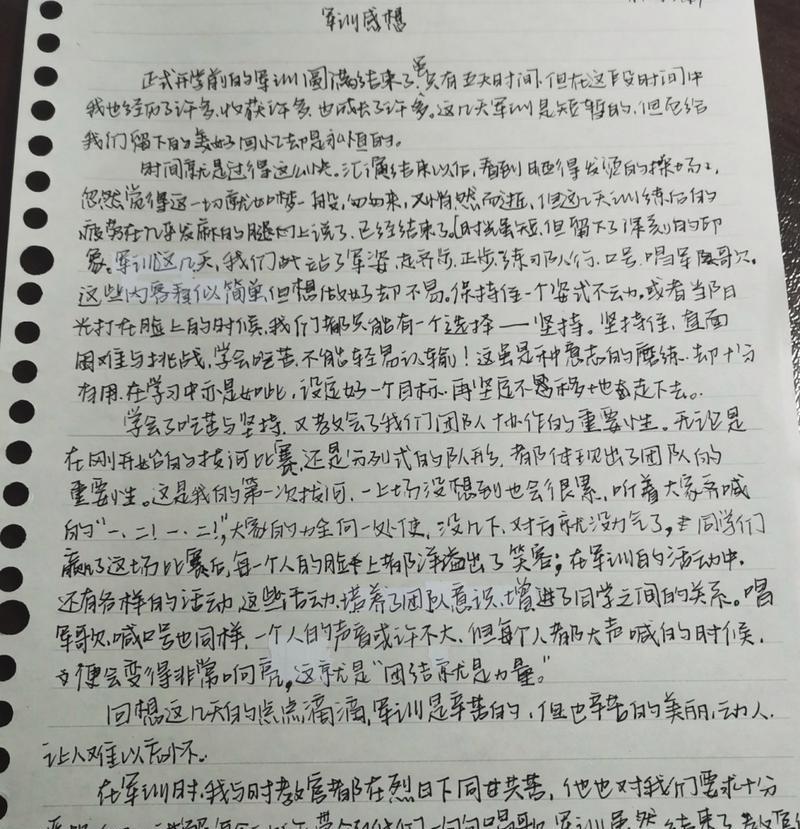 军训感想
正式开学前的军训圆满结束了,虽只有五天时间,但在这段时间中
我也经历了许多,收获许多,也成长了许多。这几天军训是短暂的,但它给
我们留下的美好回忆却是永恒的。
时间就是过得这么快。汇演结束以后,看到晒得发烫的操场,
忽然觉得这一切就如梦一般,匆匆来,又悄然而逝,但这几天训练后的
疲劳在几乎发麻的腿上说了,已经结束了。时光虽短,但留下了深刻的印
象。军训这几天,我们站了军姿,走齐步,正步,练习队行,口号,唱军队歌。
这些内容看似简单,但想做好却不易。保持住一个姿式不动,或者当阳
光打在脸上的时候,我们都只能有一个选择——坚持。坚持住,直面
困难与挑战,学会吃苦,不能轻易认输!这虽是种意志的磨练,却十分
有用,在学习中亦是如此,设定好一个目标,再坚定不移地奋走下去。
学会了吃苦与坚持,又教会了我们团队协作的重要性。无论是
在刚开始的拔河比赛,还是分列式的队形,都体现出了团队的
重要性。这是我的第一次拔河,一上场没想到也会很累,听着大家齐喊
的“一、二!一、二!”,大家的力全向一处使,没几下,对方就没力气了,同学们
赢了这场比赛后,每一个人的脸上都洋溢出了笑容;在军训的活动中,
还有各样的活动,这些活动,培养了团队意识,增进了同学之间的关系。唱
军歌,喊口号也同样,一个人的声音或许不大,但每个人都大声喊的时候,
便会变得非常响亮,这就是“团结就是力量。”
回想这几天的点点滴滴,军训是辛苦的,但也辛苦的美丽,动人,
让人难以忘怀。
在军训时,我与时教官都在烈日下同甘共苦,他也对我们要求十分